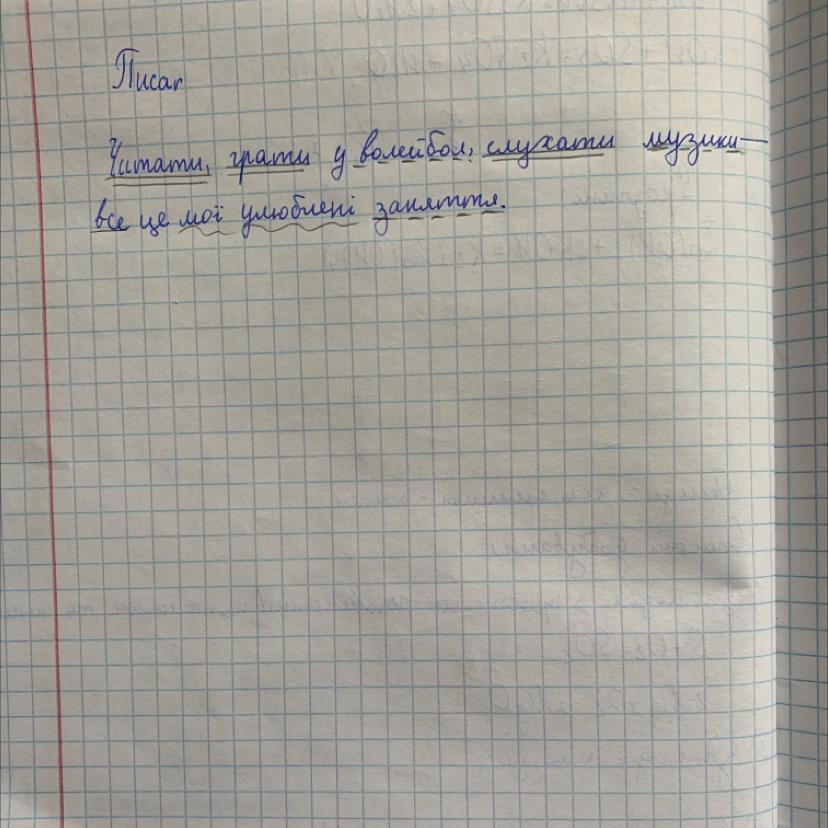 Писаг
Читати, грати у волейбол, слухати музики—
все це мої улюблені заняття.